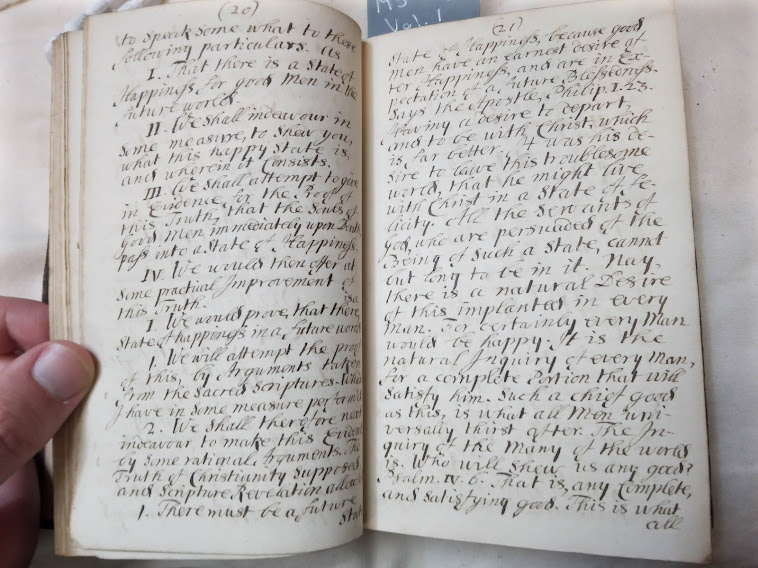 (20)
to speak some what to these
following particulars. as
I. That there is a State of
Happiness, for good Men in the
future world.
II. We shall indeavour in
some measure, to shew you,
what this happy State is,
and wherein it Consists.
III. We shall attempt to give
in Evidence for the Proof of
this Truth, that the Souls of
good Men immediately upon Death
pass into a State of Happiness.
IV. We would then offer at
some practical Improvement of
this Truth.
is a
I. We would prove, that there
State of happiness in a future world
1. We will attempt the proof
of this, by Arguments taken
from the Sacred Scriptures.
I have in some measure performed
2. We shall therefore next
indeavour to make this Evident
by some rational Arguments. The
Truth of Christianity supposed
and Scripture Revelation allowed
1. There must be a future
State
MS
Vol. 1
(21)
State of Happiness, because good
men have an earnest desire af-
ter Happiness, and are in Ex-
pectation of a future Blessedness.
Says the Apostle, Philip. 1.23.
Having a desire to depart,
and to be with Christ, which
is far better. It was his de-
sire to leave this troublesome
world, that he might live
with Christ in a State of fe-
licity. All the Servants of
God, who are persuaded of the
Being of such a State, cannot
but long to be in it. Nay,
there is a natural Desire
of this implanted in every
Man. For certainly every Man
would be happy. It is the
natural Inquiry of every Man,
for a complete Portion that will
satisfy him. Such a chief good
as this, is what all Men uni-
versally thirst after. The In-
quiry of the Many of the world
is. Who will shew us any good?
Psalm. IV. 6. That is, any Complete,
and satisfying good. This is what
all